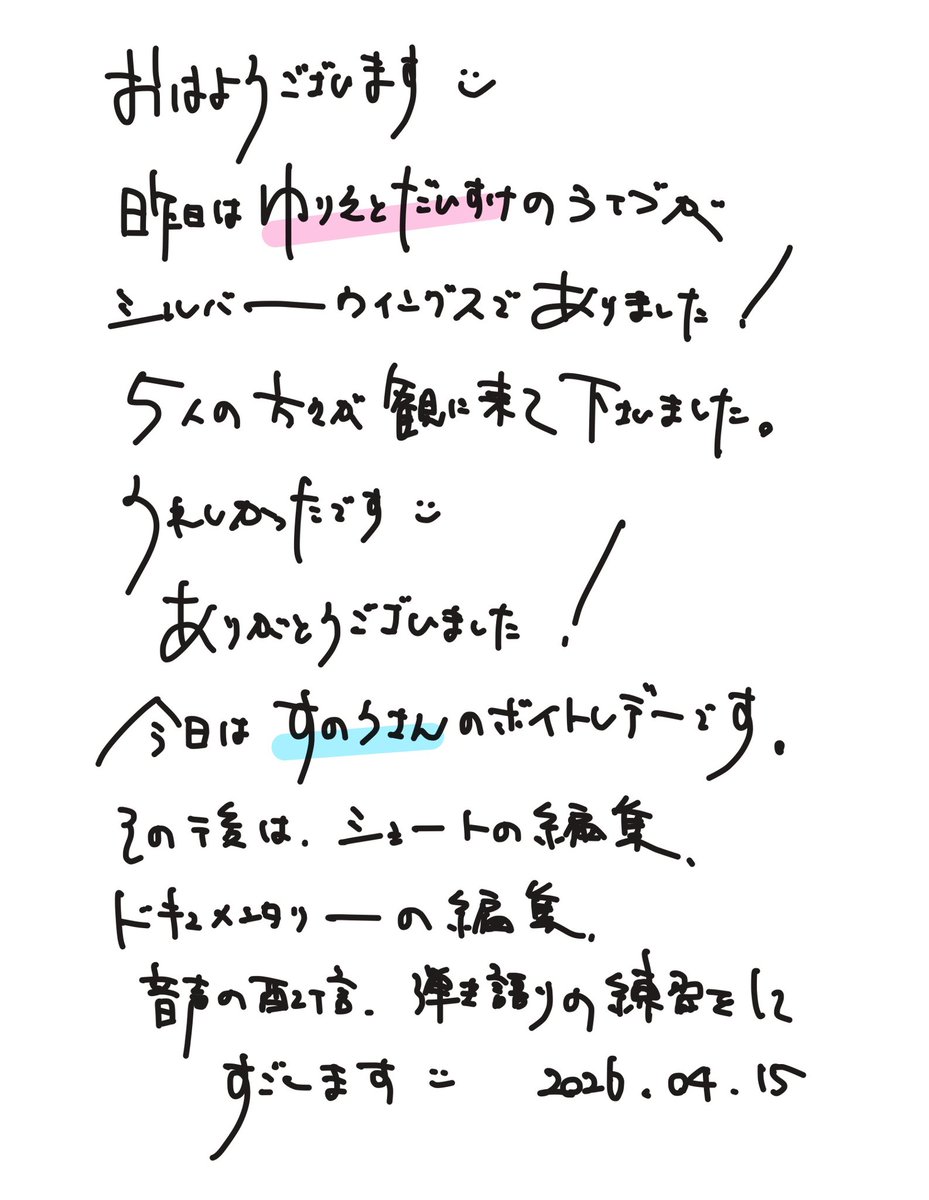 おはようございます
昨日はゆりえとだいすけのうてづが
シルバーウイングスでありました!
5人の方々が観に来て下さいました。
うれしかったです
ありがとうございました!
今日はすのうさんのボイトレデーです.
その後は、ショートの編集、
ドキュメンタリーの編集、
音声の配信、弾き語りの練習をして
すごします 2026.04.15